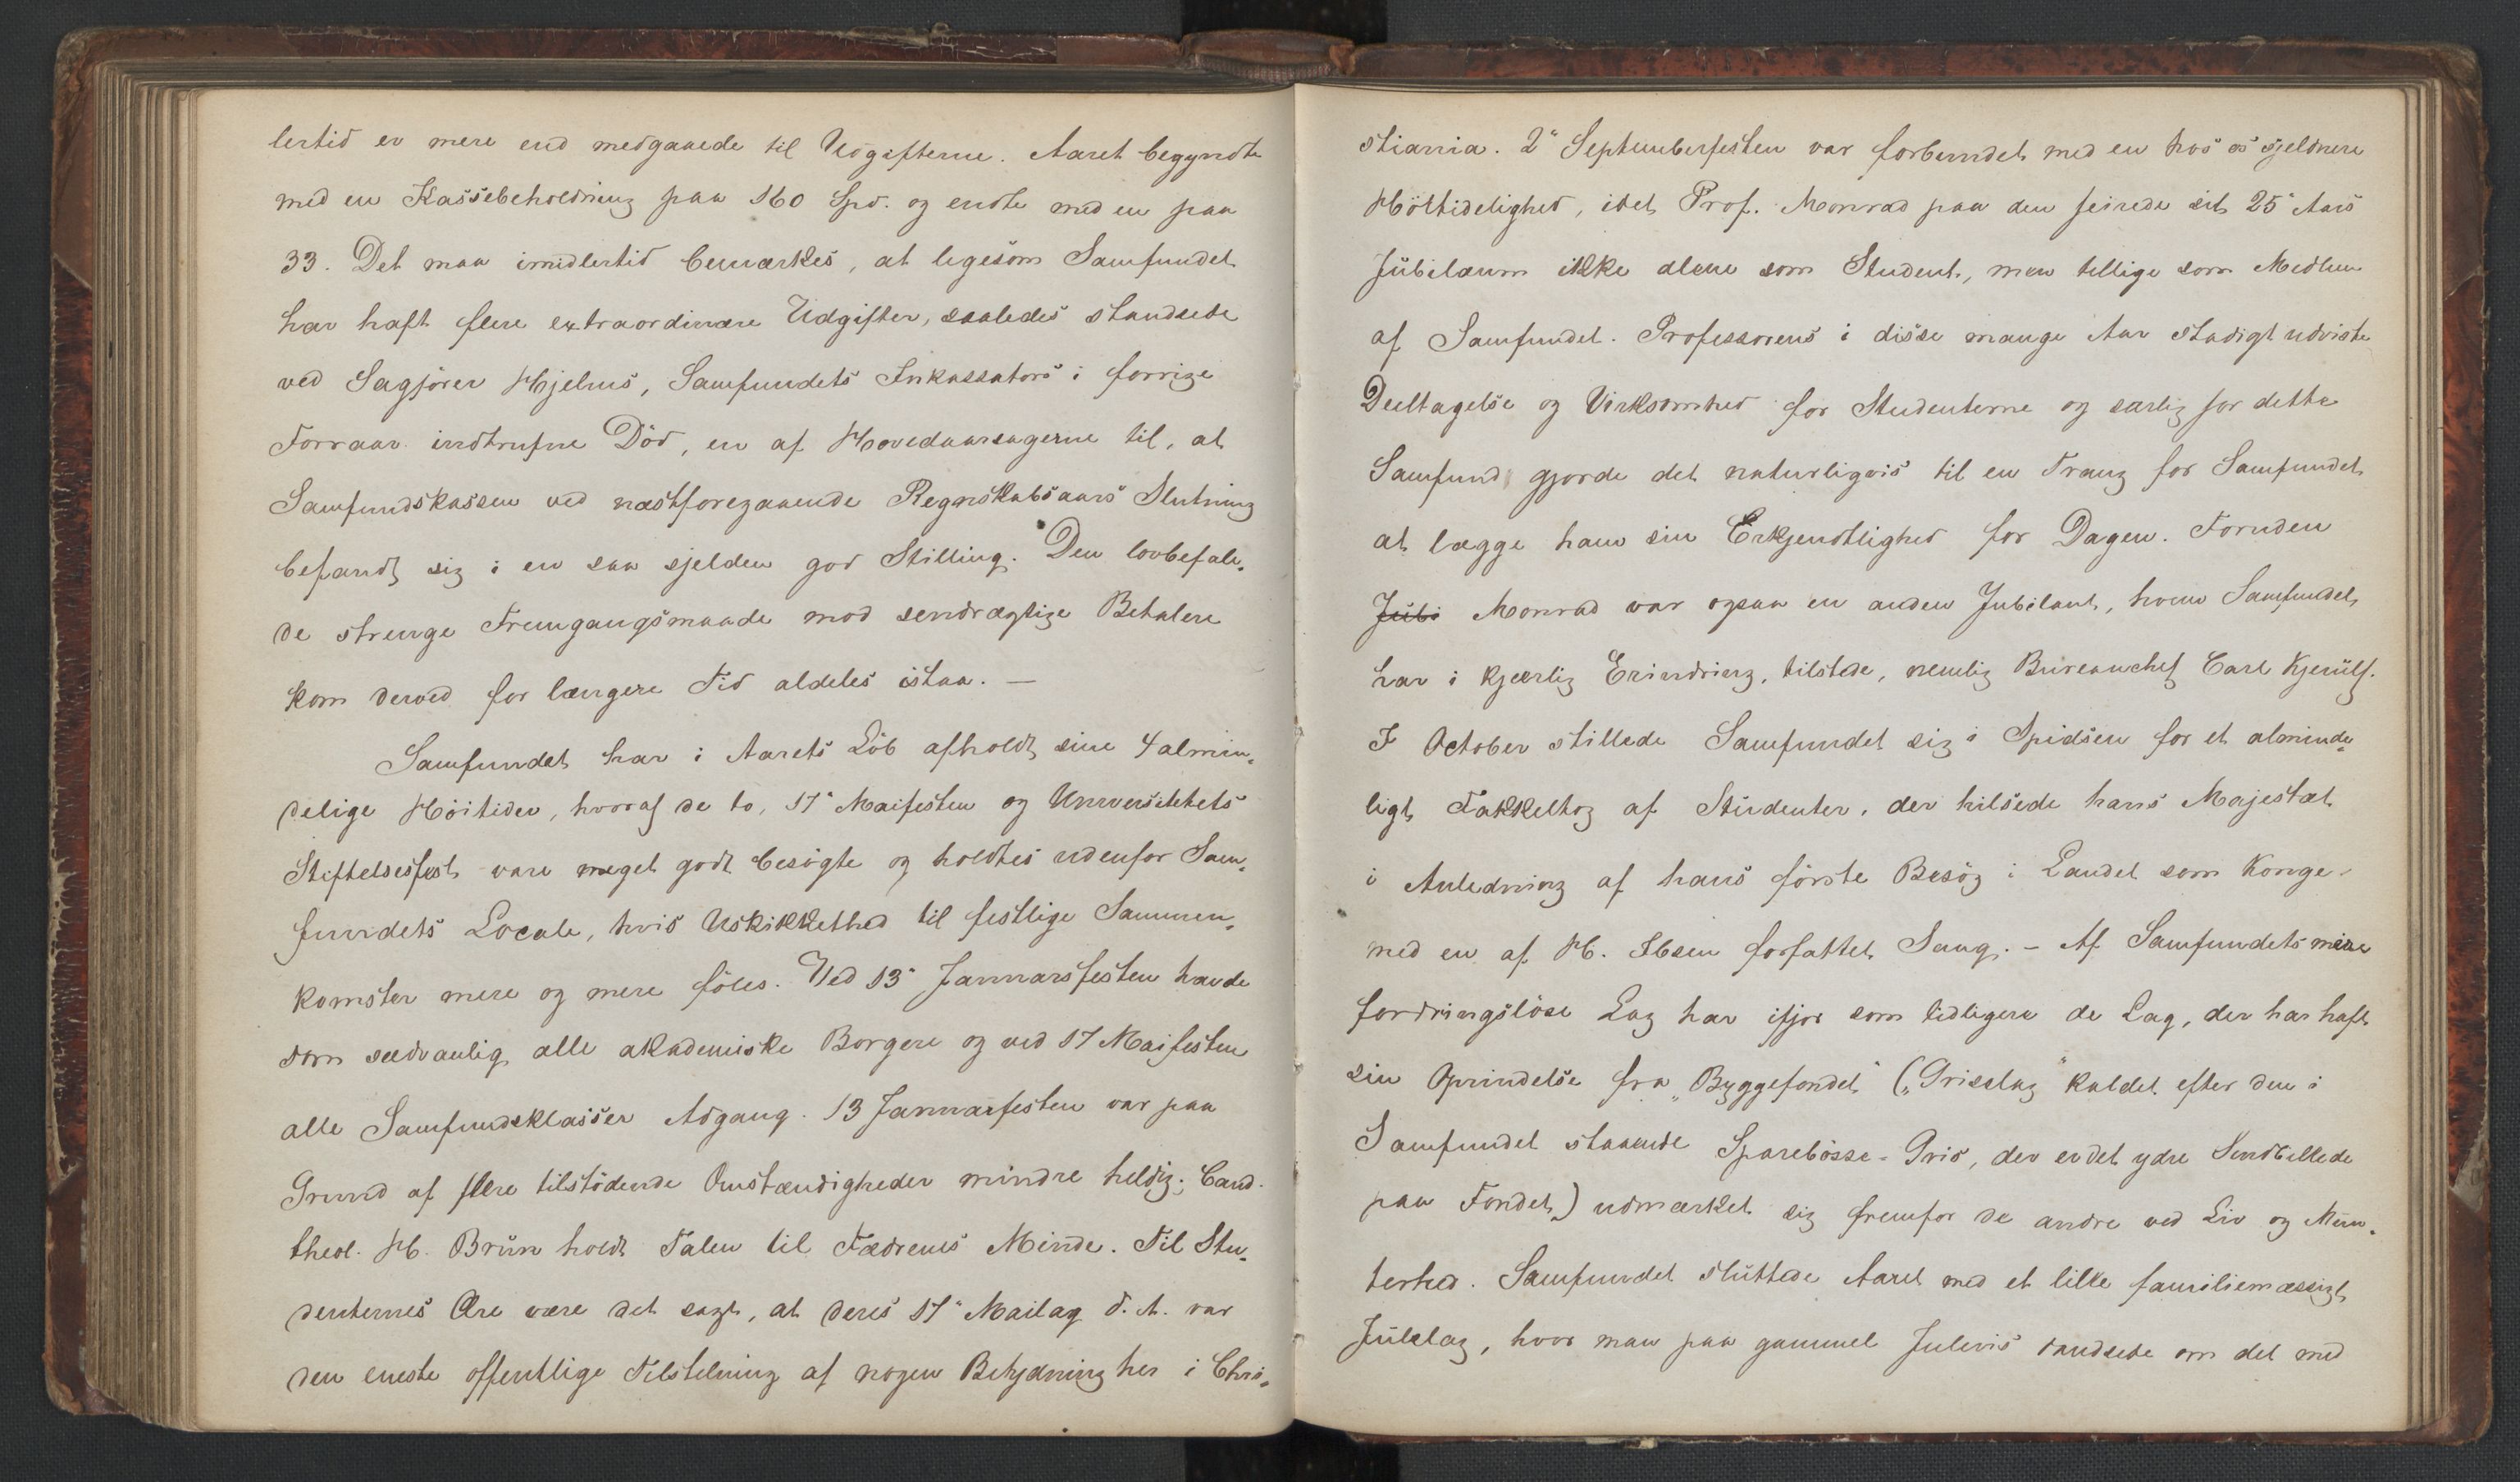 lertid er mere end medgaaede til Udgifterne. Aaret begyndte
med en Kassebeholdning paa 160 Spd. og endte med en paa
33. Det maa imidlertid bemærkes, at ligesom Samfundet
har haft flere extraordinære Udgifter, saaledes standsede
ved Sagförer Hjelms, Samfundets Inkassators i forrige
Foraar indtrufne Död, en af Hovedaarsagerne til, at
Samfundskassen ved næstforegaaende Regnskabsaars Slutning
befandt sig i en saa sjelden god Stilling. Den lovbefale-
de strenge Fremgangsmaade mod sendrægtige Betalere
kom derved for længere Tid aldeles istaa. —
Samfundet har i Aarets Löb afholdt sine 4 almin-
delige Höitider, hvoraf de to, 17" Maifesten og Universitetets
Stiftelsesfest vare meget godt besögte og holdtes udenfor Sam-
fundets Locale, hvis Uskikkethed til festlige Sammen-
komster mere og mere föles. Ved 13" Januarsfesten havde
som sædvanlig alle akademiske Borgere og ved 17 Maifesten
alle Samfundsklasser Adgang. 13 Januarfesten var paa
Grund af flere tilstödende Omstændigheder mindre heldig; Cand.
theol. H. Brün holdt Talen til Fædrenes Minde. Til Stu-
denternes Ære være det sagt, at deres 17" Mailag d. A. var
den eneste offentlige Tilstelning af nogen Betydning her i Chri-
stiania. 2" Septemberfesten var forbundet med en hos os sjeldnere
Höitidelighed, idet Prof. Monrad paa den feirede sit 25" Aars
Jübilæum ikke alene som Student, men tillige som Medlem
af Samfundet. Professorens i disse mange Aar stadigt udviste
Deeltagelse og Virksomhed for Studenterne og særlig for dette
Samfund gjorde det naturligvis til en Trang for Samfundet
at lægge ham sin Erkjendtlighed for Dagen. Foruden
Jübi Monrad var ogsaa en anden Jubilant, hvem Samfundet
har i kjærlig Erindring, tilstede, nemlig Bureauchef Carl Kjerülf.
I October stillede Samfundet sig i Spidsen for et alminde-
ligt Fakkeltog af Studenter, der hilsede hans Majestæt
i Anledning af hans förste Besög i Landet som Konge
med en af H. Ibsen forfattet Sang. – Af Samfundets mere
fordringslöse Lag har ifjor som tidligere de Lag, der har haft
sin Oprindelse fra „Byggefondet" („Griselag" kaldet efter den i
Samfundet staaende Sparebösse-Gris, der er det ydre Sindbillede
paa Fondet) udmærket sig fremfor de andre ved Liv og Mun-
terhed. Samfundet sluttede Aaret med et lille familiemæssigt
Julelag, hvor man paa gammel Julevis dandsede om det med